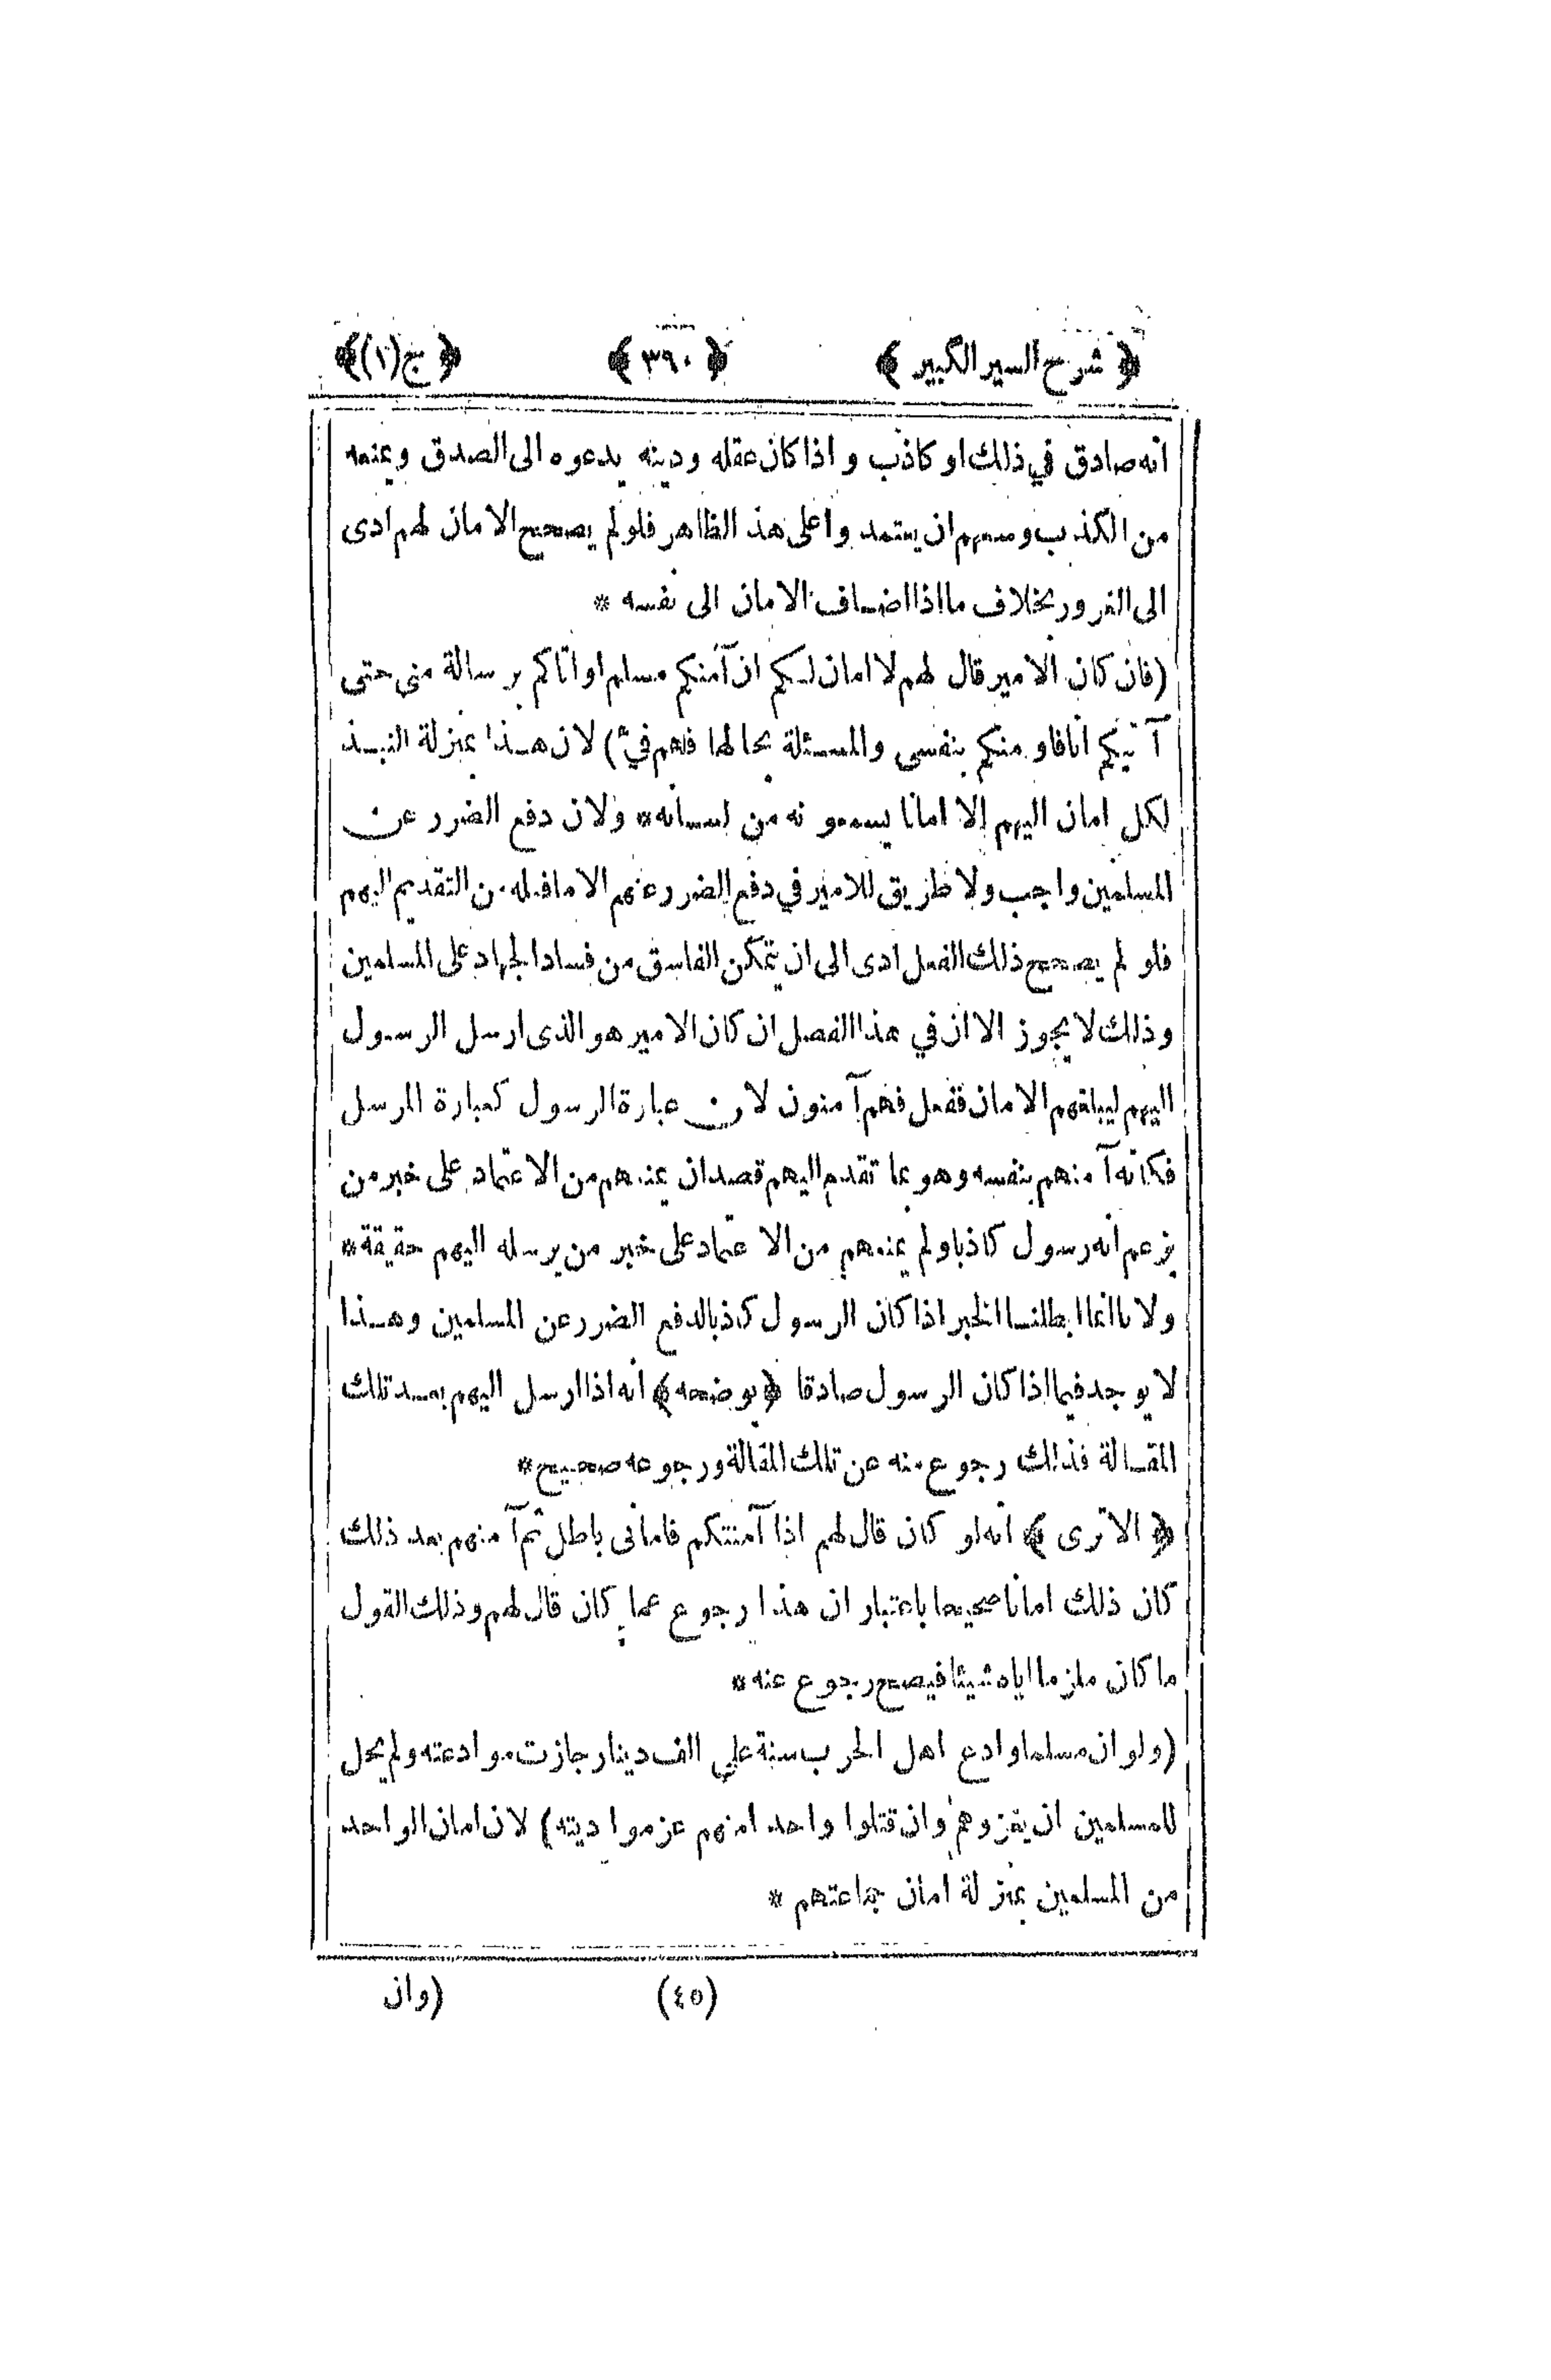 ﴿ شرح السير الكبير ﴾ ﴿ ٣٩٠ ﴾ ﴿ ج (١) ﴾
انه صادق في ذلك او كاذب و اذا كان عقله ودينه يدعوه الى الصدق ويمنعه
من الكذب وسعهم ان يعتمدوا على هذ الظاهر فلو لم يصحح الامان لهم ادى
الى الغرور بخلاف ما اذا اضاف الامان الى نفسه *
(فان كان الامير قال لهم لا امان لكم ان آمنكم مسلم او اتاكم برسالة منى حتى
آتيكم انا فاومنكم بنفسى والمسئلة بحالها فهم فيٌ) لان هذا بمنزلة النبذ
لكل امان اليهم إلا امانا يسمعونه من لسانه* ولان دفع الضرر عن
المسلمين واجب ولا طريق للامير في دفع الضرر عنهم الا مافعله من التقديم اليهم
فلو لم يصحح ذلك الفعل ادى الى ان يتمكن الفاسق من فساد الجهاد على المسلمين
وذلك لا يجوز الا ان في هذا الفصل ان كان الامير هو الذى ارسل الرسول
اليهم ليبلغهم الامان ففعل فهم آمنون لان عبارة الرسول كعبارة المرسل
فكانه آمنهم بنفسه وهو بما تقدم اليهم قصد ان يمنعهم من الاعتماد على خبر من
يزعم انه رسول كاذبا ولم يمنعهم من الاعتماد على خبر من يرسله اليهم حقيقة*
ولانا انما ابطلنا الخبر اذا كان الرسول كاذبا لدفع الضرر عن المسلمين وهذا
لا يوجد فيما اذا كان الرسول صادقا ﴿يوضحه﴾ انه اذا ارسل اليهم بعد تلك
المقالة فذلك رجوع منه عن تلك المقالة ورجوعه صحيح*
﴿ الا ترى ﴾ انه لو كان قال لهم اذا آمنتكم فامانى باطل ثم آمنهم بعد ذلك
كان ذلك امانا صحيحا باعتبار ان هذا رجوع عما كان قال لهم وذلك القول
ما كان ملزما اياه شيئا فيصح رجوع عنه*
(ولو ان مسلما وادع اهل الحرب سنة على الف دينار جازت موادعته ولم يحل
للمسلمين ان يغزوهم وان قتلوا واحد امنهم غرموا ديته) لان امان الواحد
من المسلمين بمنزلة امان جماعتهم *
(٤٥) (وان